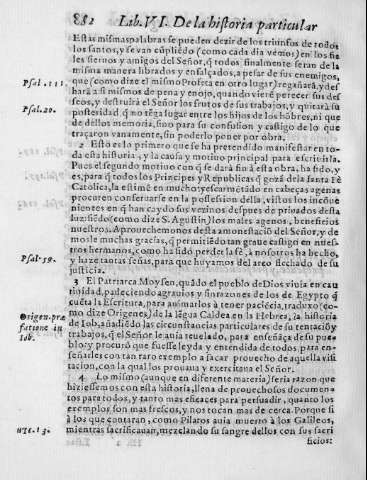 882 Lib. VI. De la historia particular
Estas mismas palabras se pueden dezir de los triunfos de todos
los santos, y se van cũpliẽdo (como cada dia vemos) en los fie
les siervos y amigos del Señor, q̃ todos finalmente seran de la
misma manera librados y ensalçados, a pesar de sus enemigos,
Psal. 111. que (como dize el mismo Profeta en otro lugar) regañarã, y des
harã a si mismos de pena y enojo, quando vierẽ perecer sus des
Psal. 20. seos, y destruirã el Señor los frutos de sus trabajos, y quitarã su
posteridad q̃ no tẽga lugar entre los hijos de los hõbres, ni que
de dellos memoria, sino para su confusion y castigo de lo que
traçaron vanamente, sin poderlo poner por obra.
2 Esto es lo primero que se ha pretendido manifestar en to-
da esta historia, y la causa y motiuo principal para escriuirla.
Pues el segundo motiuo con q̃ se dará fin à esta obra, ha sido, y
es, para q̃ todos los Principes y Republicas q̃ gozã de la santa Fè
Católica, la estimẽ en mucho y escarmẽtãdo en cabeças agenas
procuren conseruarse en la possession della, vistos los incõue
nientes en q̃ han caydo sus vezinos despues de priuados desta
luz, siẽdo (como dize S. Agustin) los males agenos, beneficios
nuestros. Aprouechemonos desta amonestaciõ del Señor, y de
mosle muchas gracias, q̃ permitiẽdo tan graue castigo en nues-
tros hermanos, como ha sido perder la fè, a nosotros ha hecho,
Psal. 59. y haze tantas señas, para que huyamos del arco flechado de su
justicia.
3 El Patriarca Moysen, quãdo el pueblo de Dios viuia en cau
tiuidad, padeciendo agrauios y sinrazones de los de Egypto q̃
cuẽta la Escritura, para animarlos à tener paciẽcia, traduxo (co-
Origen. præ mo dize Origenes) de la lẽgua Caldea en la Hebrea, la historia
fatione in de Iob, añadiẽdo las circunstancias particulares de su tentaciõ y
Iob. trabajos, q̃ el Señor le auia reuelado, para enseñãça de su pue-
blo: y procurò que fuesse leyda y entendida de todos, para en-
señarles con tan raro exemplo a sacar prouecho de aquella visi
tacion, con la qual los prouaua y exercitaua el Señor.
4 Lo mismo (aunque en diferente materia) seria razon que
hiziessemos con esta historia, llena de prouechosos documen-
tos para todos, y tanto mas eficaces para persuadir, quanto los
exemplos son mas frescos, y nos tocan mas de cerca. Porque si
à los que contaran, como Pilatos auia muerto à los Galileos,
13. mientras sacrificauan, mezclando su sangre dellos con sus sacri
ficios: